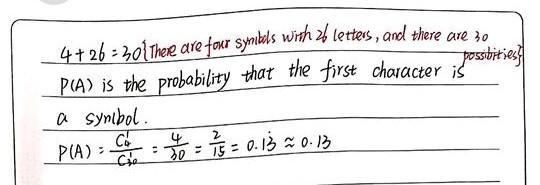 4+26=30{There are four symbols with 26 letters, and there are 30
possibities}
P(A) is the probability that the first character is
a symbol.
P(A) = C₄¹/C₃₀¹ = 4/30 = 2/15 = 0.13̇ ≈ 0.13